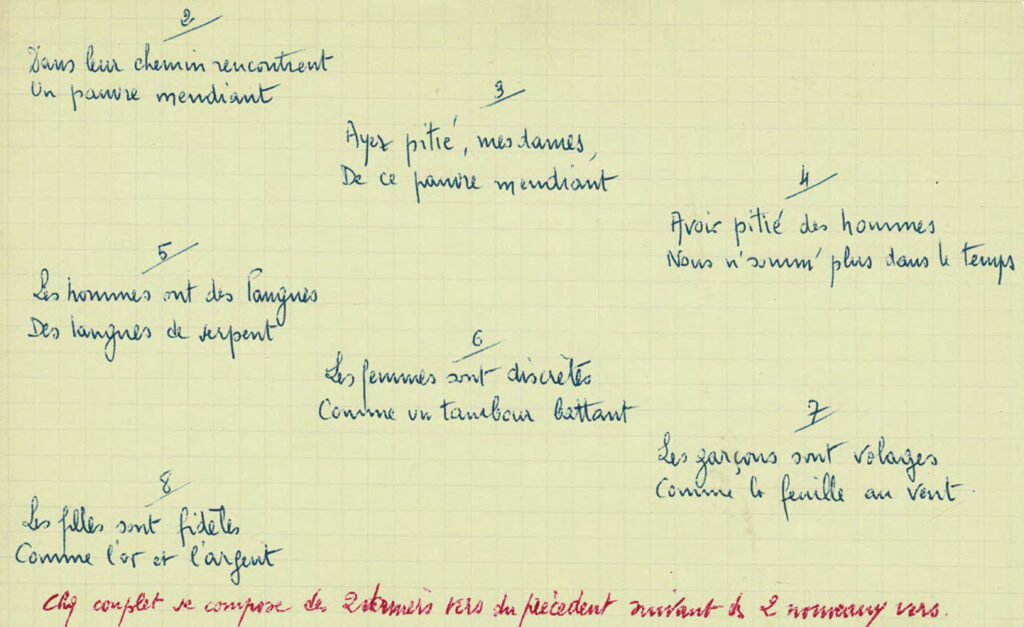 2
Dans leur chemin rencontrent
Un pauvre mendiant
3
Ayez pitié, mesdames,
De ce pauvre mendiant
4
Avoir pitié des hommes
Nous n'somm' plus dans le temps
5
Les hommes ont des langues
Des langues de serpent
6
Les femmes sont discrètes
Comme un tambour battant
7
Les garçons sont volages
Comme la feuille au vent.
8
Les filles sont fidèles
Comme l'or et l'argent
Chq couplet se compose des 2 derniers vers du précédent suivant ds 2 nouveaux vers.